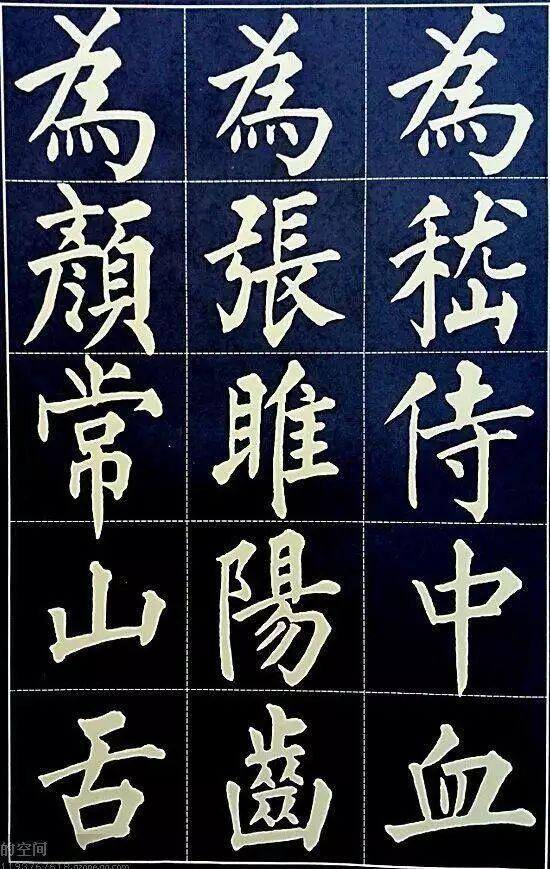 為嵇侍中血
為張睢陽齒
為顏常山舌
的空间
1193767618.qzone.qq.com